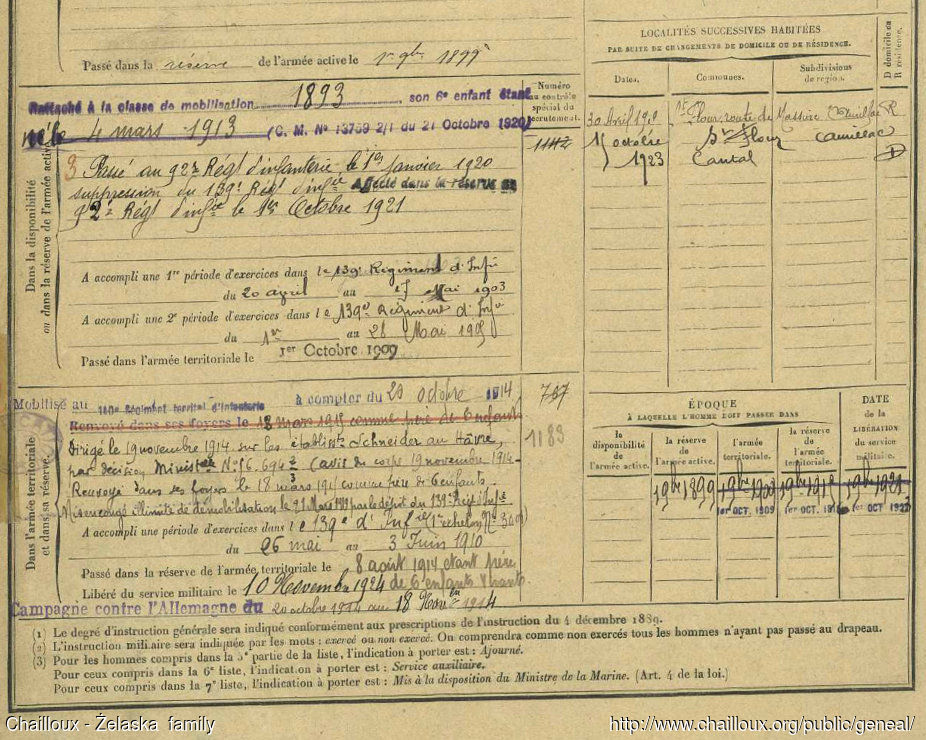 Passé dans la réserve de l'armée active le 1er 9bre 1899
Rattaché à la classe de mobilisation 1893 son 6e enfant étant
né le 4 mars 1913 (C. M. No 13769 2/1 du 21 Octobre 1920)
Dans la disponibilité
ou dans la réserve de l'armée active
3 Passé au 92e Régt d'infanterie le 1er Janvier 1920
suppression du 139e Régt d'infie Affecté dans la réserve au
92e Régt d'infie le 1er Octobre 1921
A accompli une 1re période d'exercices dans le 139e Régiment d'Infie
du 20 avril au Mai 1903
A accompli une 2e période d'exercices dans le 139e Régiment d'Infie
du 1er au 28 Mai
Passé dans l'armée territoriale le 1er Octobre 1909
Numéro
au contrôle
spécial du
recrutement.
1142
LOCALITÉS SUCCESSIVES HABITÉES
PAR SUITE DE CHANGEMENTS DE DOMICILE OU DE RÉSIDENCE.
Dates.
Communes.
Subdivisions
de région.
D domicile ou
R résidence.
30 Avril St Flour, route de Aurillac R
1 octobre St Flour Aurillac D
1923 Cantal
Dans l'armée territoriale
et dans sa réserve.
Mobilisé au 140e Régiment territal d'infanterie à compter du 20 octobre 1914
767
Renvoyé dans ses foyers le 18 mars 1915 comme père de 6 enfants
Dirigé le 19 novembre 1914 sur les établissts Schneider au Hâvre,
par décision Ministlle No 16.694 2 (avis du corps 19 novembre 1914.
1183
Renvoyé dans ses foyers le 18 mars 191 comme père de 6 enfants.
Mis en congé illimité de démobilisation le 21 Mars 1919 par le dépôt du 139e Régt d'Infie
A accompli une période d'exercices dans le 139e d'Infie (1er échelon No 300)
du 26 mai au 3 Juin 1910
Passé dans la réserve de l'armée territoriale le 8 août 1914 étant père
Libéré du service militaire le 10 Novembre 1924 de 6 enfants vivants
Campagne contre l'Allemagne du 20 octobre 1914 au 18 Nov 1914
ÉPOQUE
À LAQUELLE L'HOMME DOIT PASSER DANS
la
disponibilité
de
l'armée active.
la réserve
de
l'armée active.
l'armée
territoriale.
la réserve
de
l'armée
territoriale.
DATE
de la
LIBÉRATION
du service
militaire.
1 9bre 1899
1 9bre 1909
1 9bre 1915
1 9bre 1921
1er OCT. 1909
1er OCT
1er OCT
(1) Le degré d'instruction générale sera indiqué conformément aux prescriptions de l'instruction du 4 décembre 1889.
(2) L'instruction militaire sera indiquée par les mots : exercé ou non exercé. On comprendra comme non exercés tous les hommes n'ayant pas passé au drapeau.
(3) Pour les hommes compris dans la 5e partie de la liste, l'indication à porter est : Ajourné.
Pour ceux compris dans la 6e liste, l'indication à porter est : Service auxiliaire.
Pour ceux compris dans la 7e liste, l'indication à porter est : Mis à la disposition du Ministre de la Marine. (Art. 4 de la loi.)
Chailloux - Żelaska family
http://www.chailloux.org/public/geneal/